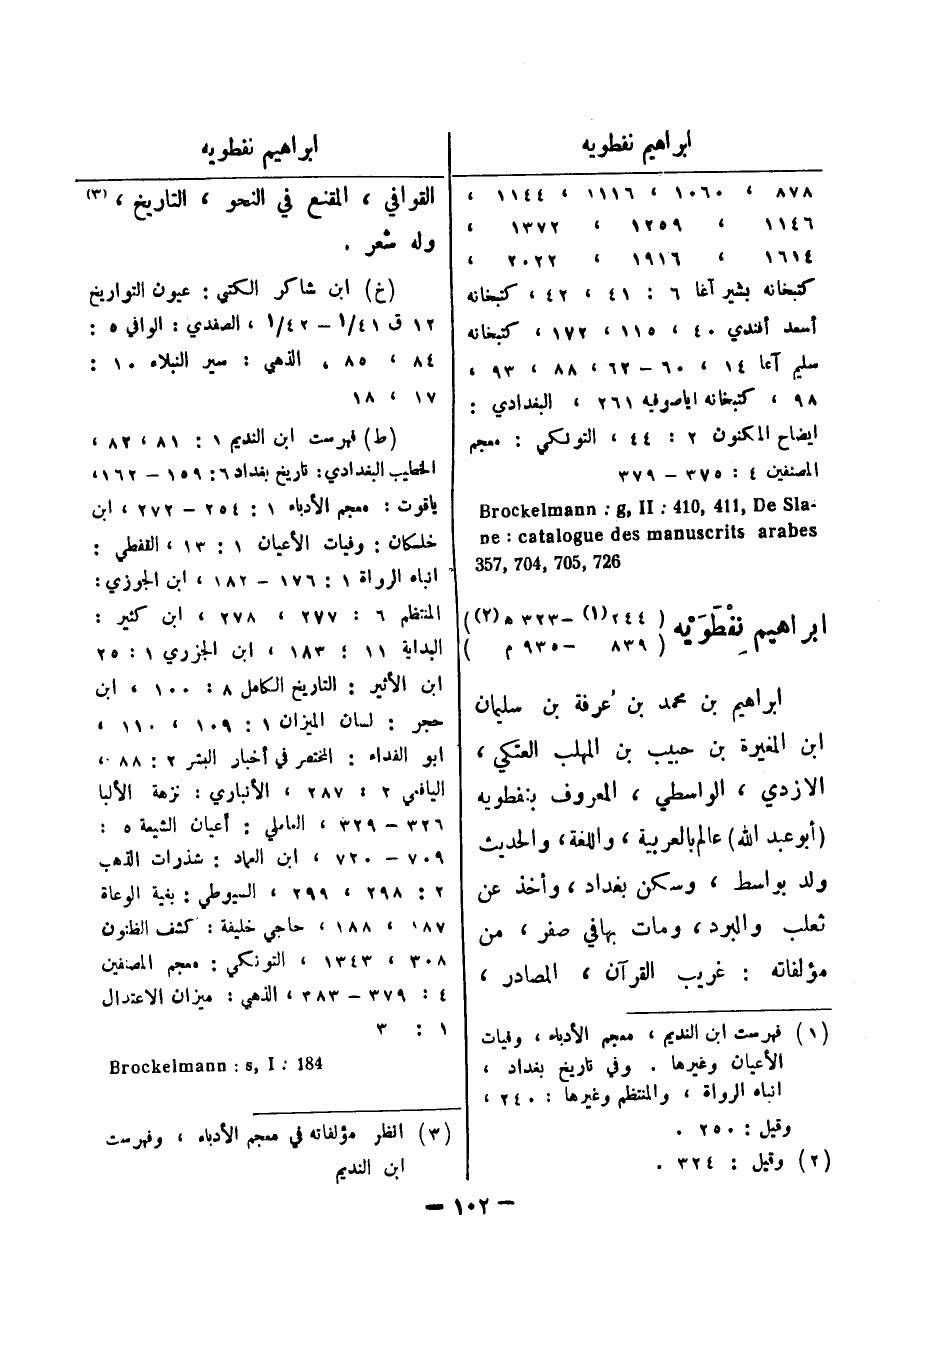 ابراهيم نفطويه
٨٧٨ ، ١٠٦٠ ، ١١١٦ ، ١١٤٤ ،
١١٤٦ ، ١٢٥٩ ، ١٣٧٢ ،
١٦١٤ ، ١٩١٦ ، ٢٠٢٢ ،
كتبخانه بشير آغا ٦ : ٤١ ، ٤٢ ، كتبخانه
أسعد أفندي ٤٠ ، ١١٥ ، ١٧٢ ، كتبخانه
سليم آغا ١٤ ، ٦٠ – ٦٢ ، ٨٨ ، ٩٣ ،
٩٨ ، كتبخانه اياصوفيه ٢٦١ ، البغدادي :
ايضاح المكنون ٢ : ٤٤ ، التونكي : معجم
المصنفين ٤ : ٣٧٥ – ٣٧٩
Brockelmann : g, II : 410, 411, De Sla-
ne : catalogue des manuscrits arabes
357, 704, 705, 726
ابراهيم نِفْطَوَيْه ( ٢٤٤(١) – ٣٢٣ ه(٢))
( ٨٣٩ – ٩٣٥ م )
ابراهيم بن محمد بن عُرفة بن سليمان
ابن المغيرة بن حبيب بن المهلب العتكي ،
الازدي ، الواسطي ، المعروف بنفطويه
(أبو عبد الله) عالم بالعربية ، واللغة ، والحديث
ولد بواسط ، وسكن بغداد ، وأخذ عن
ثعلب والمبرد ، ومات بها في صفر ، من
مؤلفاته : غريب القرآن ، المصادر ،
(١) فهرست ابن النديم ، معجم الأدباء ، وفيات
الأعيان وغيرها . وفي تاريخ بغداد ،
انباه الرواة ، والمنتظم وغيرها : ٢٤٠ ،
وقيل : ٢٥٠ .
(٢) وقيل : ٣٢٤ .
ابراهيم نفطويه
القوافي ، المقنع في النحو ، التاريخ ، (٣)
وله شعر .
(خ) ابن شاكر الكتبي : عيون التواريخ
١٢ ق ١/٤١ – ١/٤٢ ، الصفدي : الوافي ٥ :
٨٤ ، ٨٥ . الذهبي : سير النبلاء ١٠ :
١٧ ، ١٨
(ط) فهرست ابن النديم ١ : ٨١ ، ٨٢ ،
الخطيب البغدادي : تاريخ بغداد ٦ : ١٥٩ – ١٦٢ ،
ياقوت : معجم الأدباء ١ : ٢٥٤ – ٢٧٢ ، ابن
خلكان : وفيات الأعيان ١ : ١٣ ، القفطي :
انباه الرواة ١ : ١٧٦ – ١٨٢ ، ابن الجوزي :
المنتظم ٦ : ٢٧٧ ، ٢٧٨ ، ابن كثير :
البداية ١١ : ١٨٣ ، ابن الجزري ١ : ٢٥
ابن الأثير : التاريخ الكامل ٨ : ١٠٠ ، ابن
حجر : لسان الميزان ١ : ١٠٩ ، ١١٠ ،
ابو الفداء : المختصر في أخبار البشر ٢ : ٨٨ ،
اليافعي ٢ : ٢٨٧ ، الأنباري : نزهة الألبا
٣٢٦ – ٣٢٩ ، العاملي : أعيان الشيعة ٥ :
٧٠٩ – ٧٢٠ ، ابن العماد : شذرات الذهب
٢ : ٢٩٨ ، ٢٩٩ ، السيوطي : بغية الوعاة
١٨٧ ، ١٨٨ ، حاجي خليفة : كشف الظنون
٣٠٨ ، ١٣٤٣ ، التونكي : معجم المصنفين
٤ : ٣٧٩ – ٣٨٣ ، الذهبي : ميزان الاعتدال
١ : ٣
Brockelmann : s, I : 184
(٣) انظر مؤلفاته في معجم الأدباء ، وفهرست
ابن النديم
– ١٠٢ –